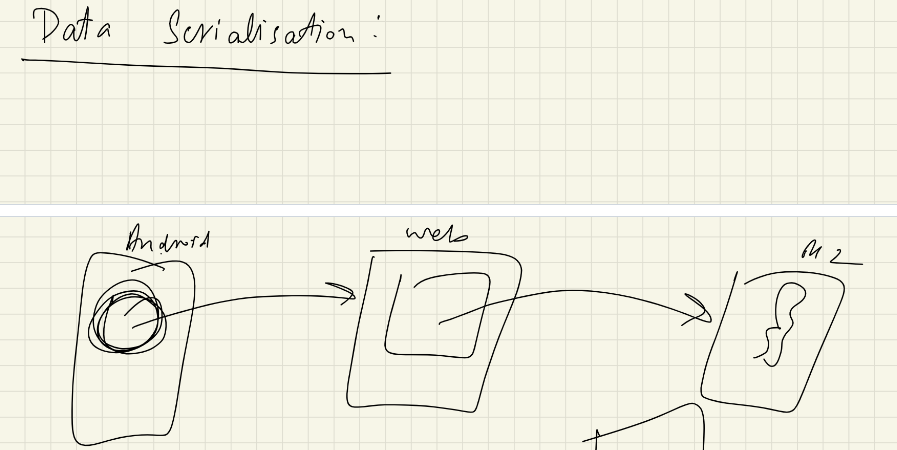 Data Serialisation:
Android
web
M2